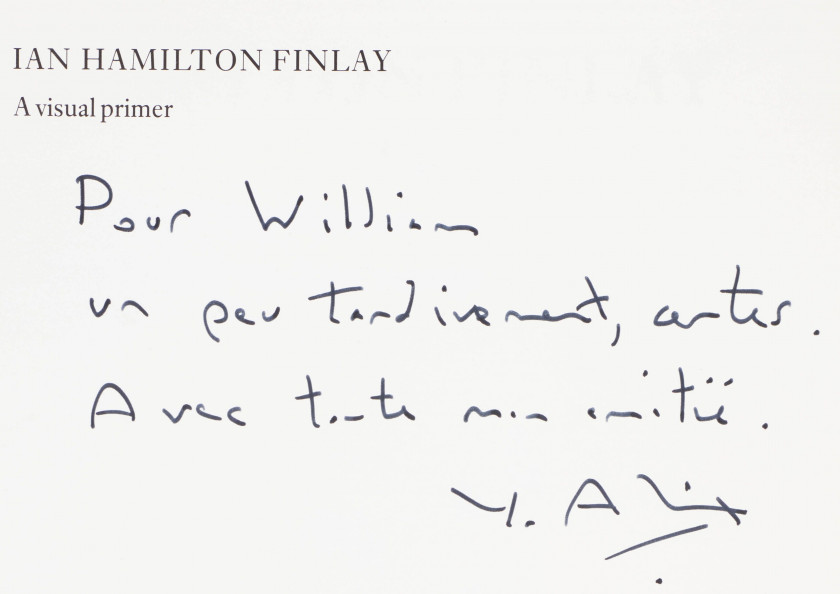 IAN HAMILTON FINLAY
A visual primer
Pour William
un peu tardivement, certes.
Avec toute mon amitié.
Y. A